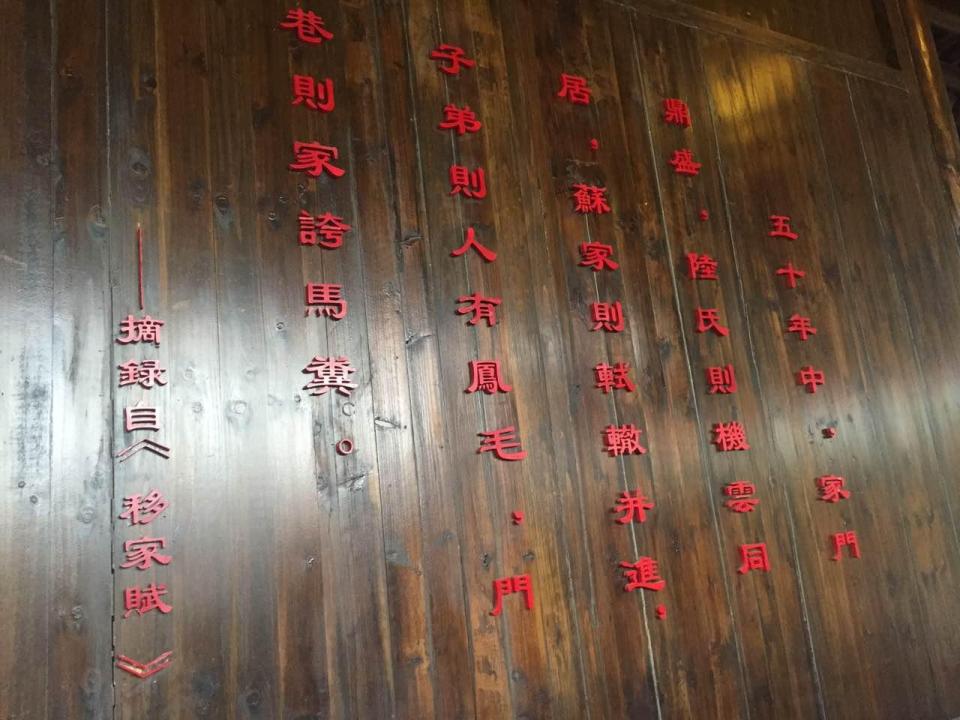 五十年中，家門
鼎盛，陸氏則機雲同
居，蘇家則軾轍并進；
子弟則人有鳳毛，門
巷則家誇馬糞。
——摘録自《移家賦》